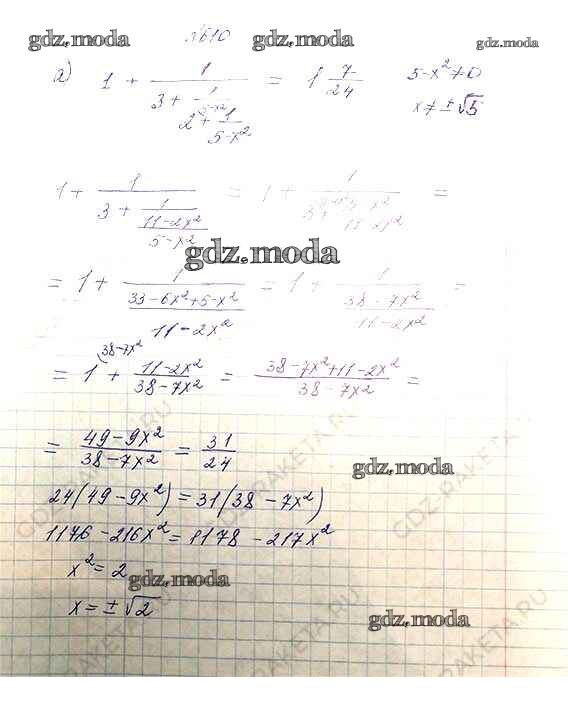 №610
gdz.moda gdz.moda gdz.moda
а) 1 + 1/(3 + 1/(2 + 1/(5-x²))) = 1 7/24 5-x² ≠ 0
x ≠ ± √5
1 + 1/(3 + 1/((11-2x²)/(5-x²))) = 1 + 1/(3 + (5-x²)/(11-2x²)) =
gdz.moda
= 1 + 1/((33-6x²+5-x²)/(11-2x²)) = 1 + 1/((38-7x²)/(11-2x²)) =
= 1 (38-7x² + (11-2x²)/(38-7x²) = (38-7x²+11-2x²)/(38-7x²) =
= (49-9x²)/(38-7x²) = 31/24
gdz.moda
24(49-9x²) = 31(38-7x²)
1176-216x² = 1178-217x²
x² = 2
gdz.moda
x = ± √2
gdz.moda
GDZ-RAKETA.RU
GDZ-RAKETA.RU